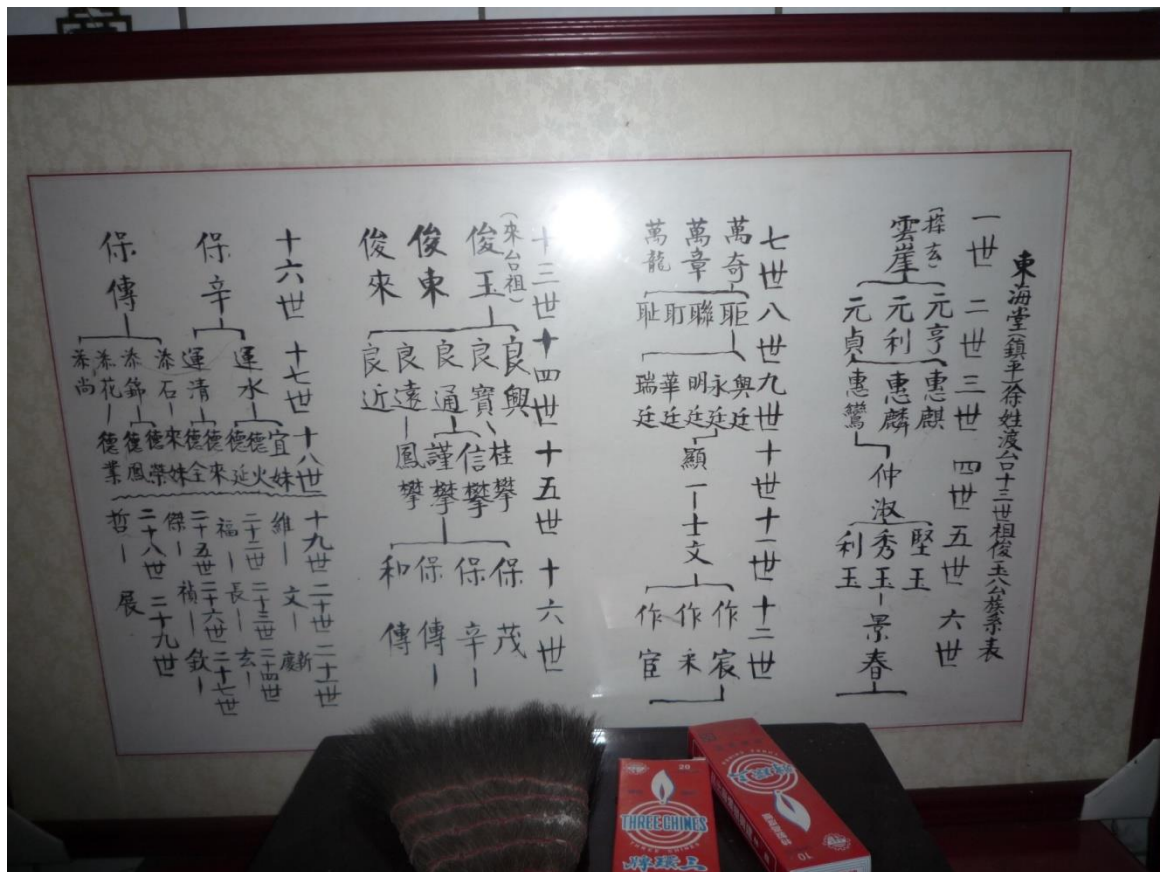 東海堂(鎮平)徐姓渡台十三世祖俊玉公蔟系表
一世 二世 三世 四世 五世 六世
(探玄)
雲崖 元亨 惠麒
元利 惠麟
元貞 惠鸞
仲淑
堅玉
秀玉 景春
利玉
七世 八世 九世 十世 十一世 十二世
萬奇 萬章 萬龍
耵 聯 耻
興廷 永廷 明廷 華廷 瑞廷
顯一 士文
作宸
作釆
作宦
十三世 十四世 十五世 十六世
(來台祖)
俊玉 俊東 俊來
良興 良寶 良通 良遠 良近
桂攀 信攀 謹攀 鳳攀
保茂 保辛 保傳 和傳
十六世 十七世 十八世
保辛 運水 運清
保傳 添石 添錦 添花 添尚
宜妹 德火 德延 德來 德全 來妹 德榮 德鳳 德業
十九世 二十世 二十一世
維 文 新慶
二十二世 二十三世 二十四世
福 長 玄
二十五世 二十六世 二十七世
傑 禎 欽
二十八世 二十九世
哲 展
20
THREE CHINES
牌環三
10